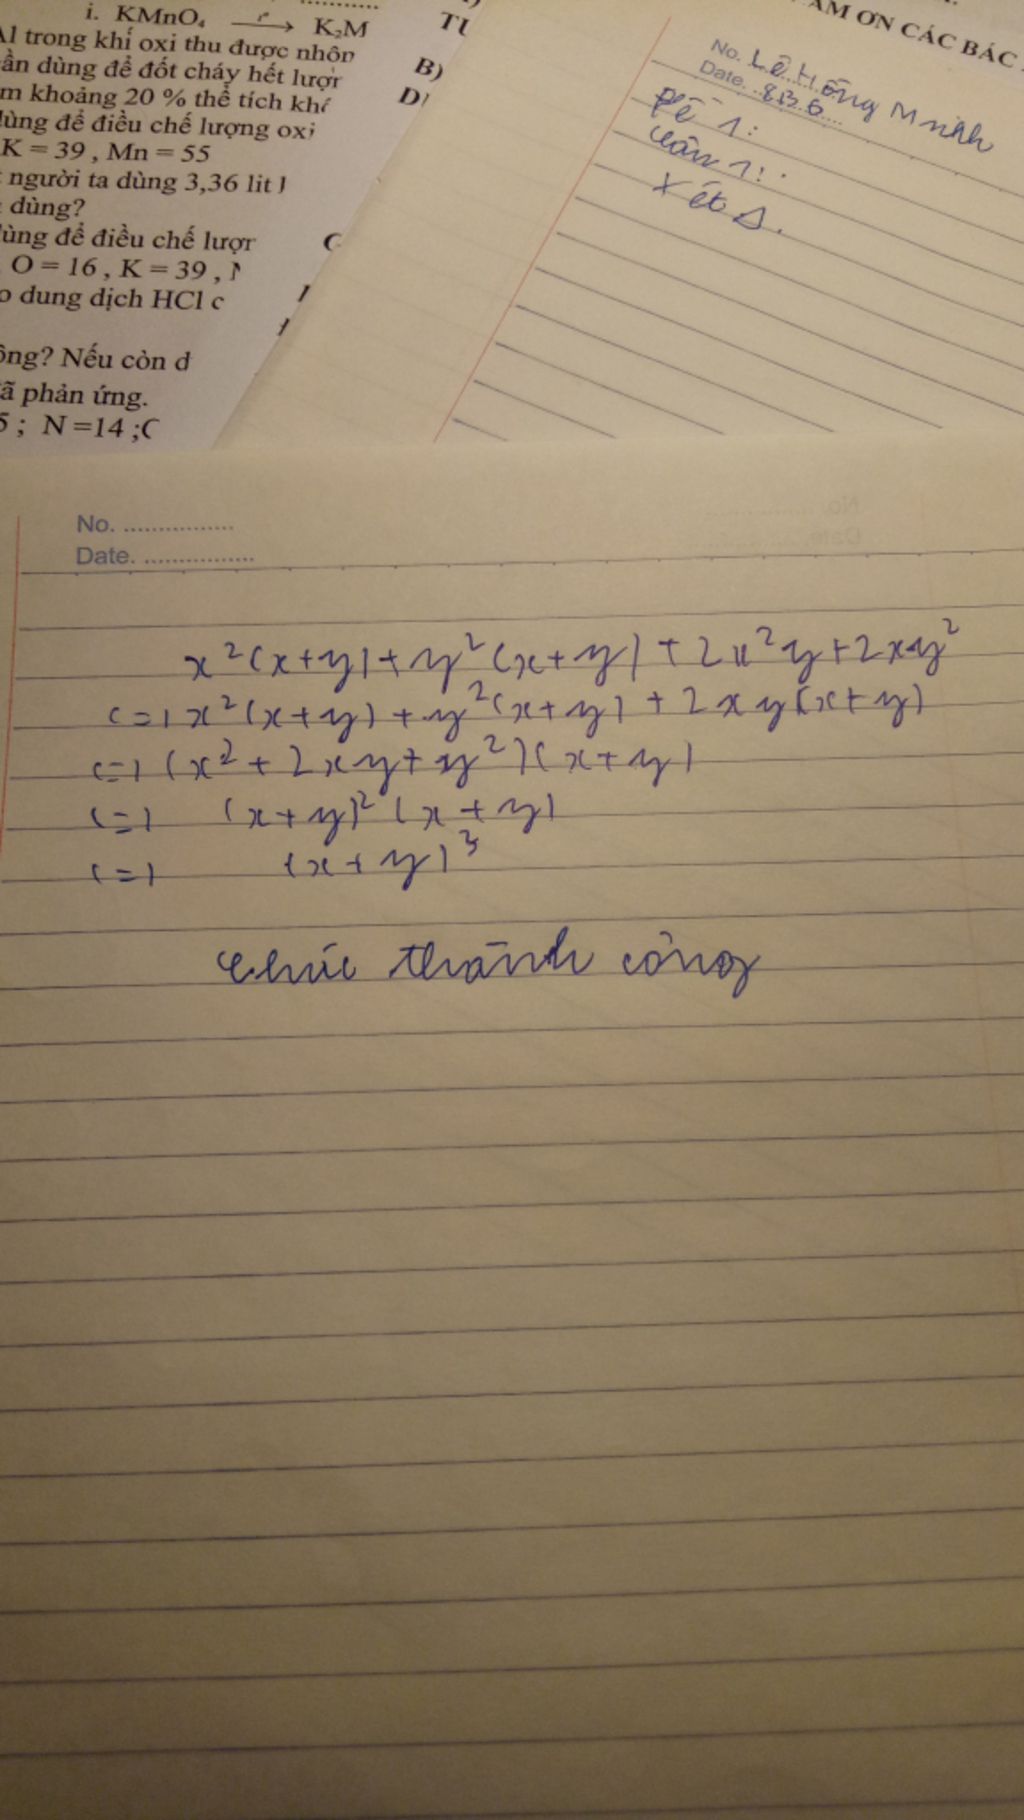 i. KMnO₄ →(t°) K₂M
Al trong khí oxi thu được nhôn
ần dùng để đốt cháy hết lượr
m khoảng 20 % thể tích khí
dùng để điều chế lượng oxi
K = 39 , Mn = 55
người ta dùng 3,36 lit
dùng?
ùng để điều chế lượr
O = 16 , K = 39 ,
o dung dịch HCl c
ông? Nếu còn d
ã phản ứng.
5 ; N =14 ;C
B)
D
ẢM ƠN CÁC BÁC
No. Lê Hồng Mninh
Date. 8B6
Đề 1:
Câu 1:
Xét Δ.
No. ................
Date. ................
x²(x+y)+y²(x+y)+2x²y+2xy²
(=) x²(x+y)+y²(x+y)+2xy(x+y)
(=) (x²+2xy+y²)(x+y)
(=) (x+y)²(x+y)
(=) (x+y)³
Chúc thành công